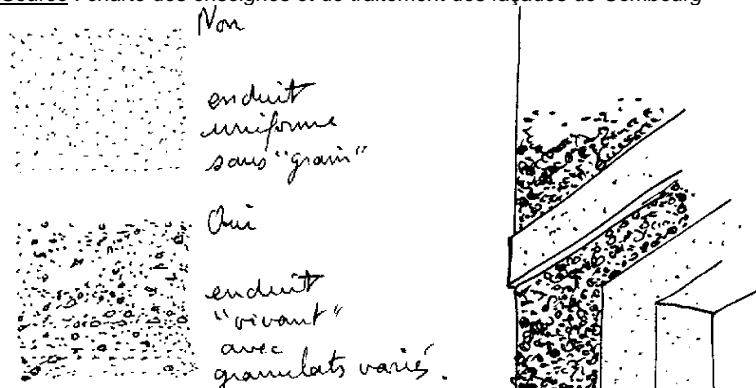 Source : charte des enseignes et de traitement des façades de Combourg
Non
enduit
uniforme
sans "grain"
Oui
enduit
"vivant"
avec
granulats variés.